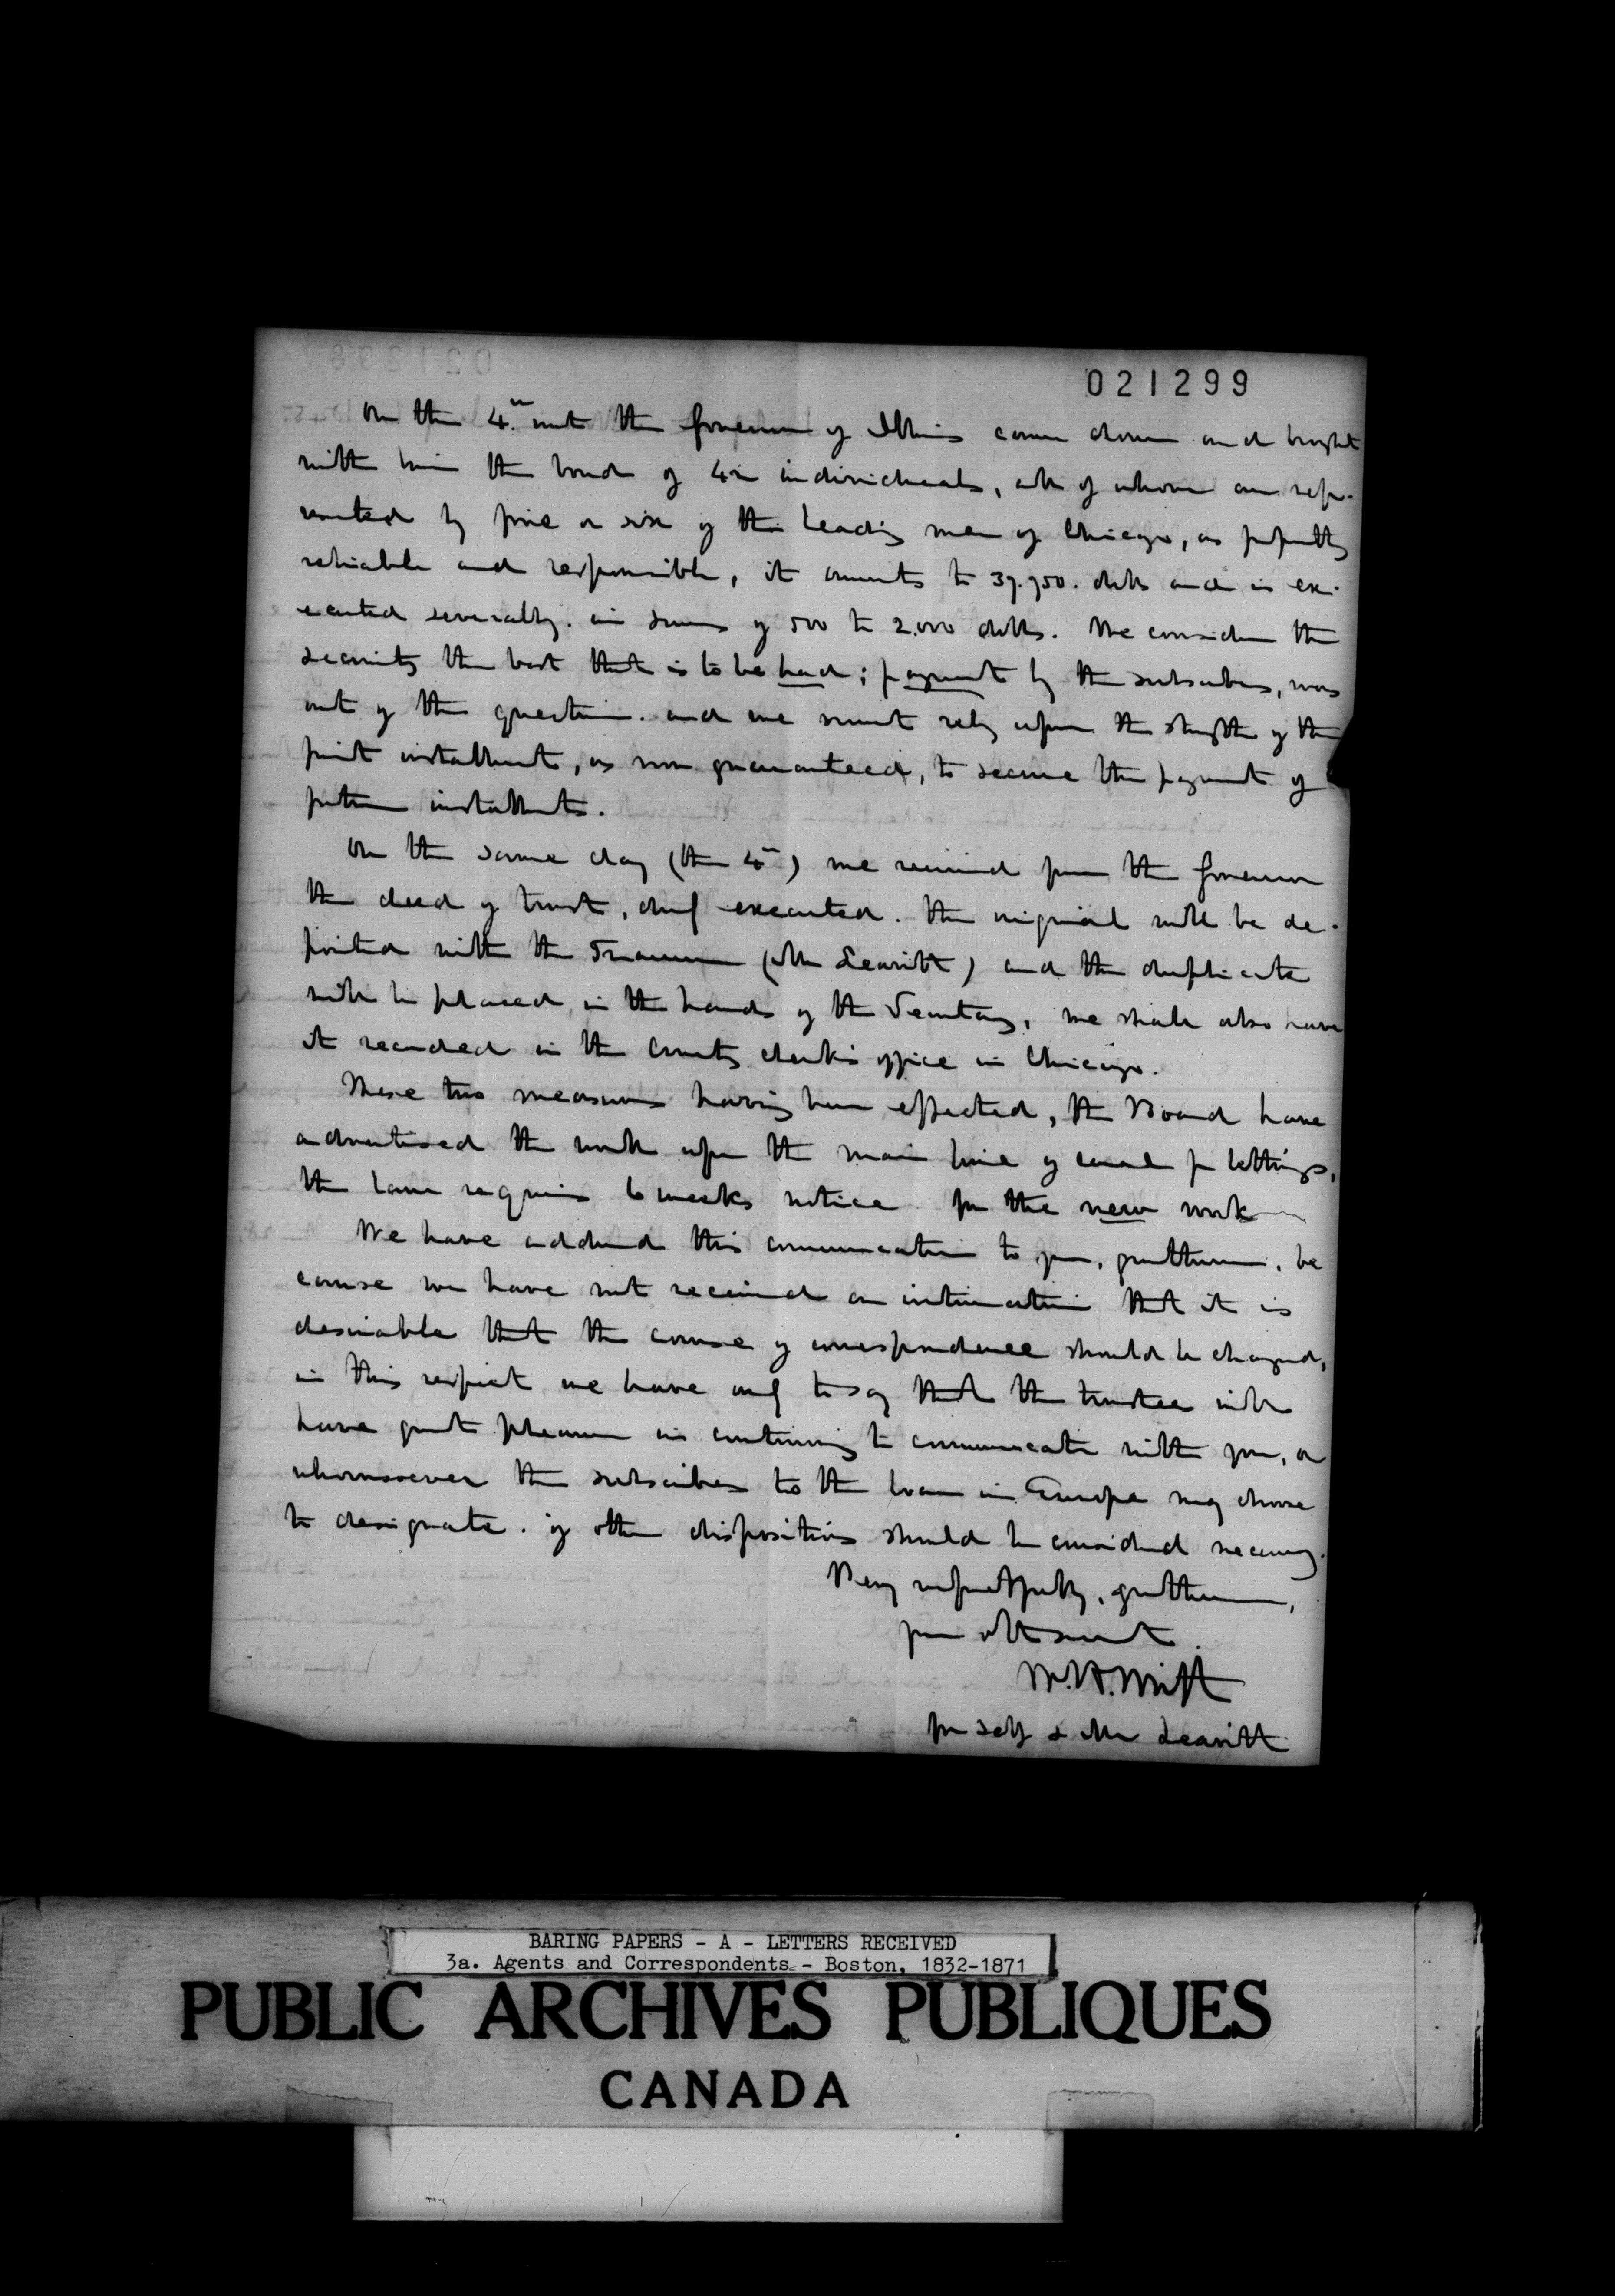 021299
On the 4th inst the Governor of Illinois came down and brought
with him the bond of 42 individuals, all of whom are repre-
sented by five or six of the leading men of Chicago, as perfectly
reliable and responsible, it amounts to 37.750. dolls and is ex-
ecuted severally. in sums of 500 to 2.000 dolls. We consider the
security the best that is to be had; payment by the subscribers, was
out of the question. and we must rely upon the strength of the
first installment, as now guaranteed, to secure the payment of
future installments.
On the same day (the 4th) we received from the Governor
the deed of trust, duly executed. the original will be de-
posited with the Treasurer (Mr Leavitt) and the duplicate
will be placed in the hands of the Secretary, we shall also have
it recorded in the County clerk's office in Chicago.
These two measures having been effected, the Board have
advertised the work upon the main line of canal for lettings,
the law requires 6 weeks notice for the new work
We have addressed this communication to you, gentlemen, be
cause we have not received an intimation that it is
desirable that the course of correspondence should be changed,
in this respect we have only to say that the trustees will
have great pleasure in continuing to communicate with you, or
whomsoever the subscribers to the loan in Europe may choose
to designate. if other dispositions should be considered necessary.
Very respectfully, gentlemen,
your obt servt.
W. H. Swift
for self & Mr Leavitt
BARING PAPERS - A - LETTERS RECEIVED
3a. Agents and Correspondents - Boston, 1832-1871
PUBLIC ARCHIVES PUBLIQUES
CANADA